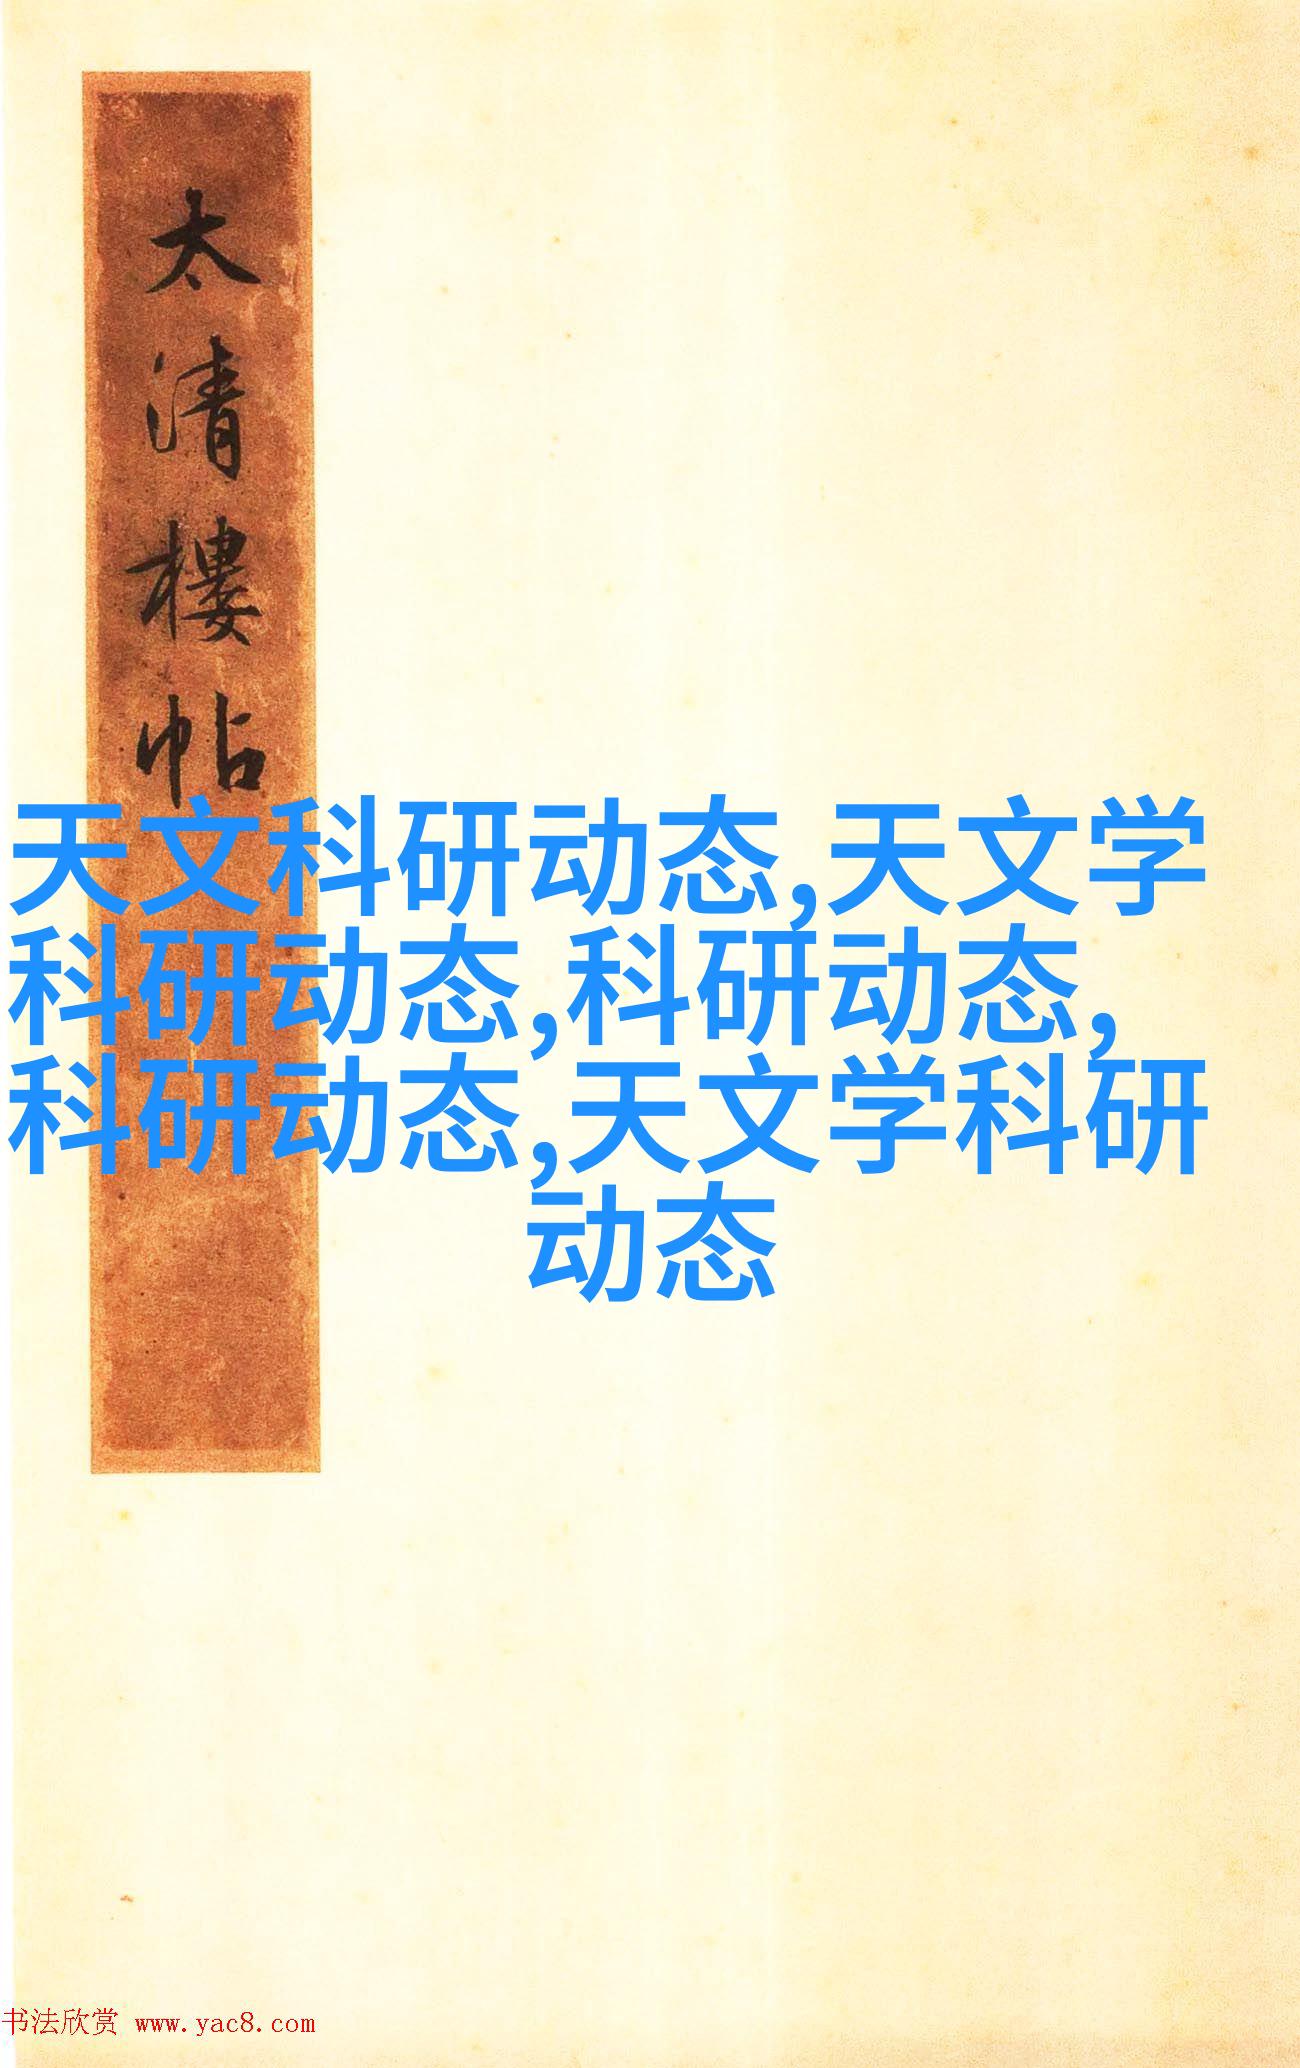 太清樓帖
天文科研动态,天文学
科研动态,科研动态,
科研动态,天文学科研
动态
书法欣赏 www.yac8.com